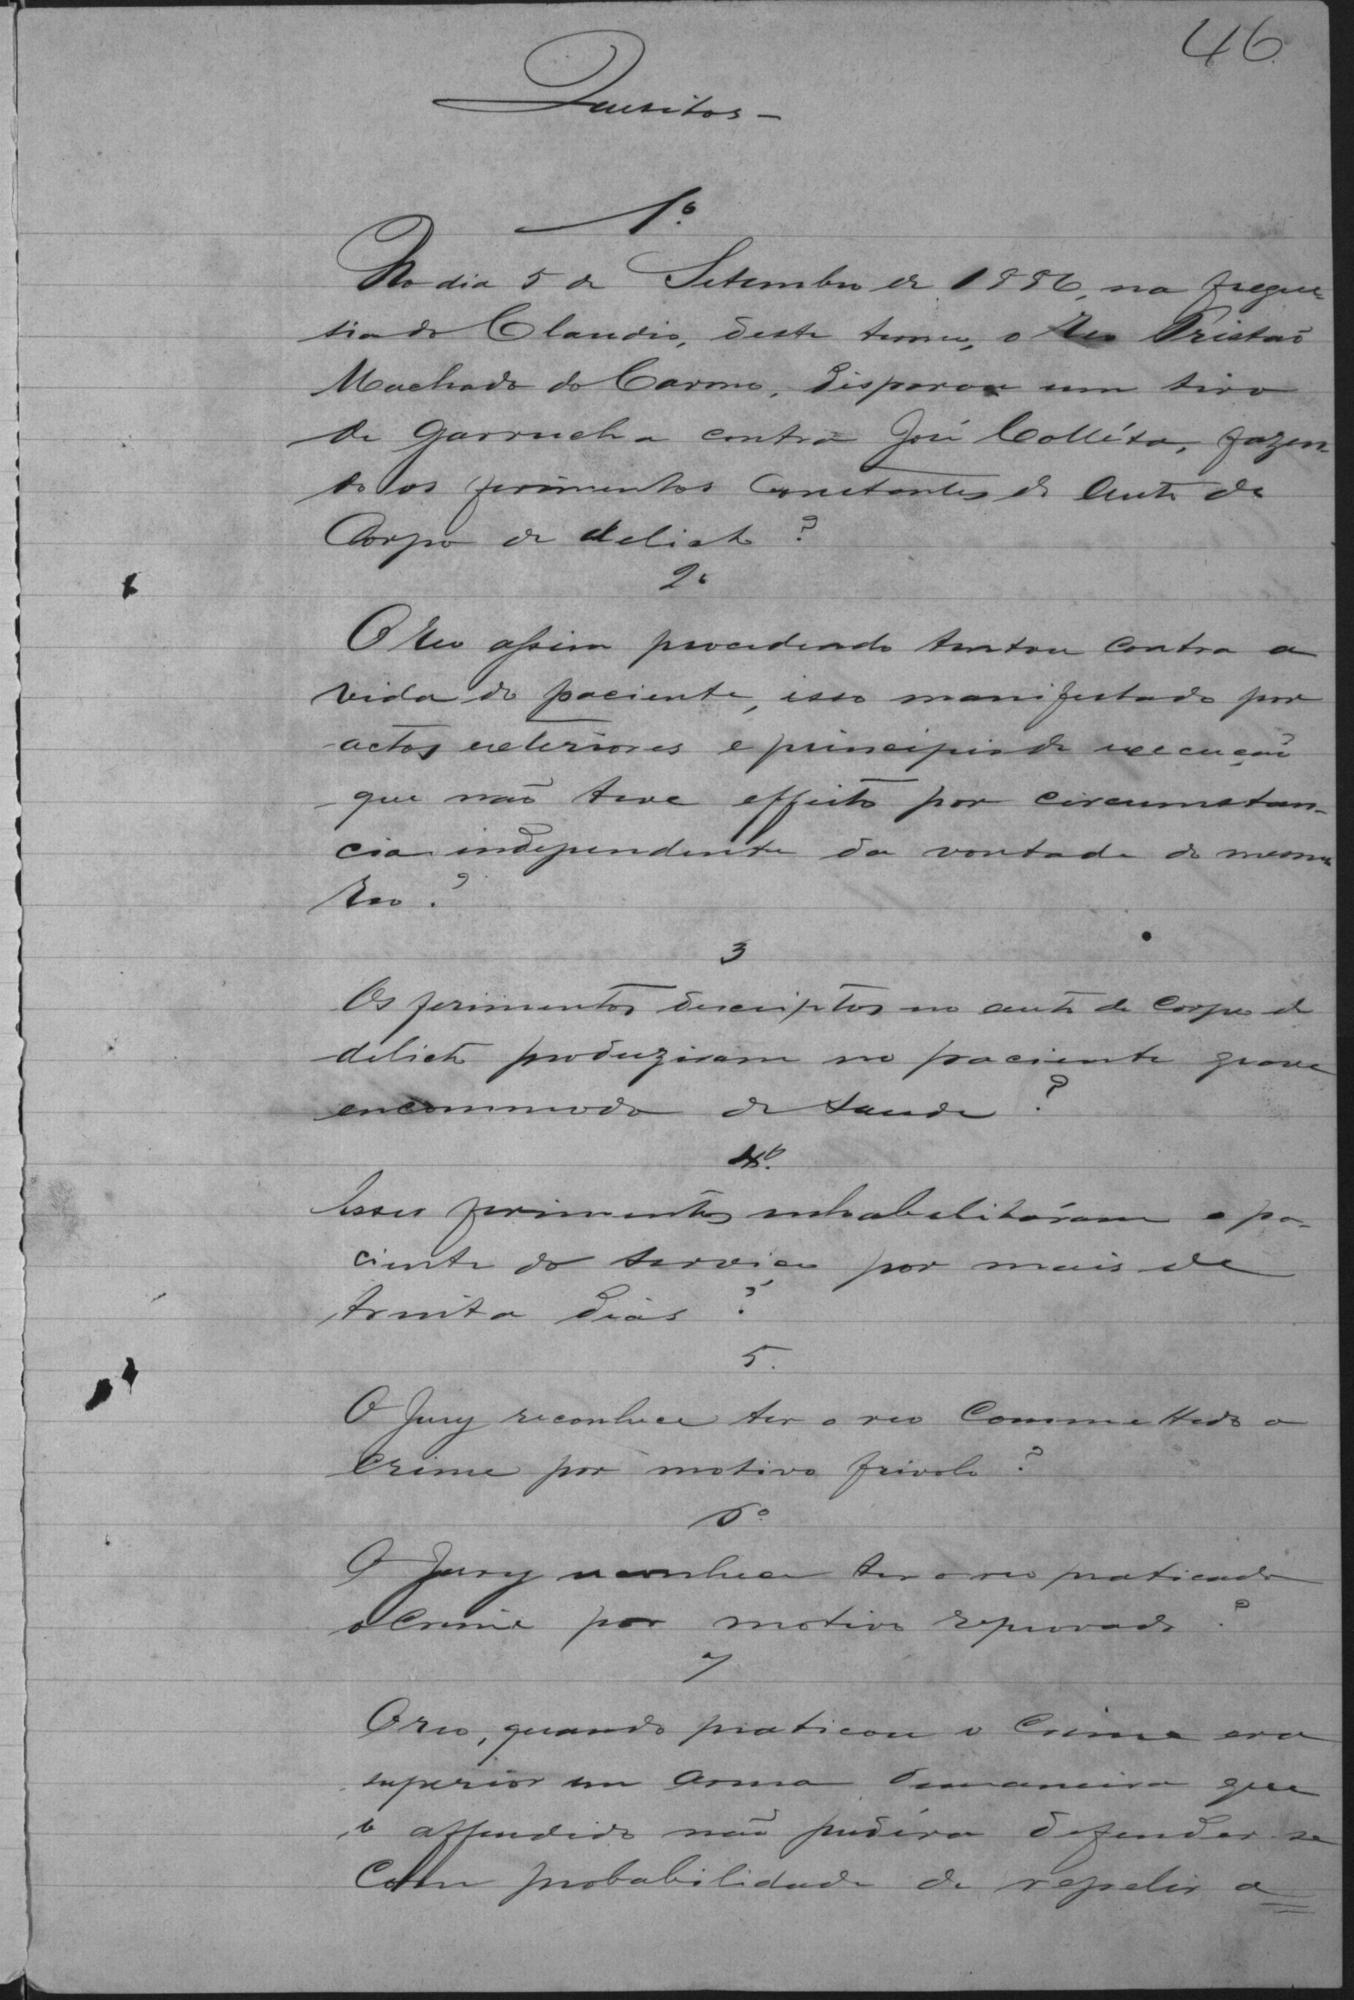 46
Quesitos -
1º
No dia 5 de Setembro de 1886, na fregue
sia do Claudio, deste termo, o Reo Tristaõ
Machado do Carmo, disparou um tiro
de garrucha contra José Colléta, fazen
do os ferimentos Constantes do Auto de
Corpo de delicto ?
2º
O Reo assim procedendo tentou contra a
vida do paciente, isso manifestado por
actos exteriores e principio de execuçaõ
que naõ teve effeito por circumstan-
cia independente da vontade do mesmo
Reo ?
3
Os ferimentos descriptos no auto de corpo de
delicto produziram no paciente grave
encommodo de saude ?
4º
Esses ferimentos inhabelitáram o pa-
ciente do serviço por mais de
trinta dias ?
5.
O Jury reconhece ter o reo Commettido o
Crime por motivo frivolo ?
6º
O Jury reconhece ter o reo praticado
o Crime por motivo reprovado ?
7
O reo, quando praticou o Crime era
superior em arma demaneira que
o offendido naõ pudéra defender-se
Com probabilidade de repelir a